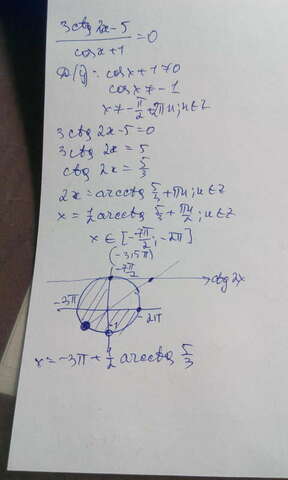 3ctg 2x-5
cosx+1 =0
D/y: cosx+1≠0
cosx≠-1
x≠-π/2+2πn; n∈Z
3ctg 2x-5=0
3ctg 2x=5
ctg 2x=5/3
2x=arcctg 5/3+πn; n∈Z
x=1/2 arcctg 5/3+πn/2; n∈Z
x∈[-7π/2; -2π]
(-3,5π)
-7π/2
ctg 2x
-3π
-2π
-1
x=-3π+1/2 arcctg 5/3